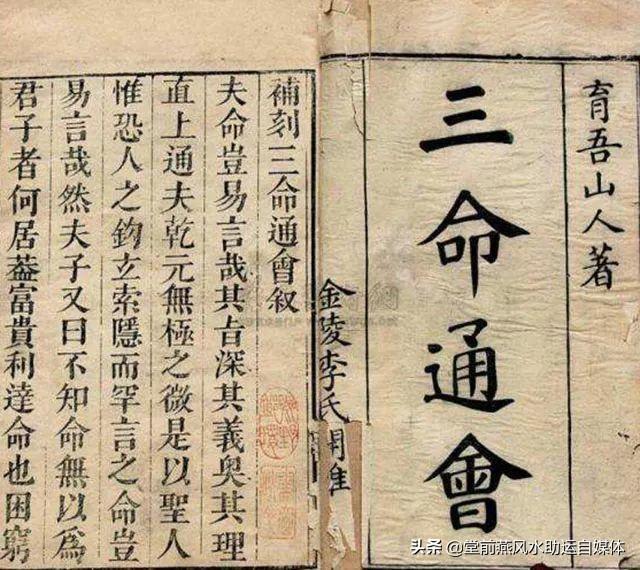 育吾山人著
三命通會
金陵李氏
補刻三命通會叙
夫命豈易言哉其旨深其義奥其理
直上通夫乾元無極之微是以聖人
惟恐人之鈎玄索隱而罕言之命豈
易言哉然夫子又曰不知命無以爲
君子者何居葢富貴利達命也困窮
头条 @堂前燕风水助运自媒体